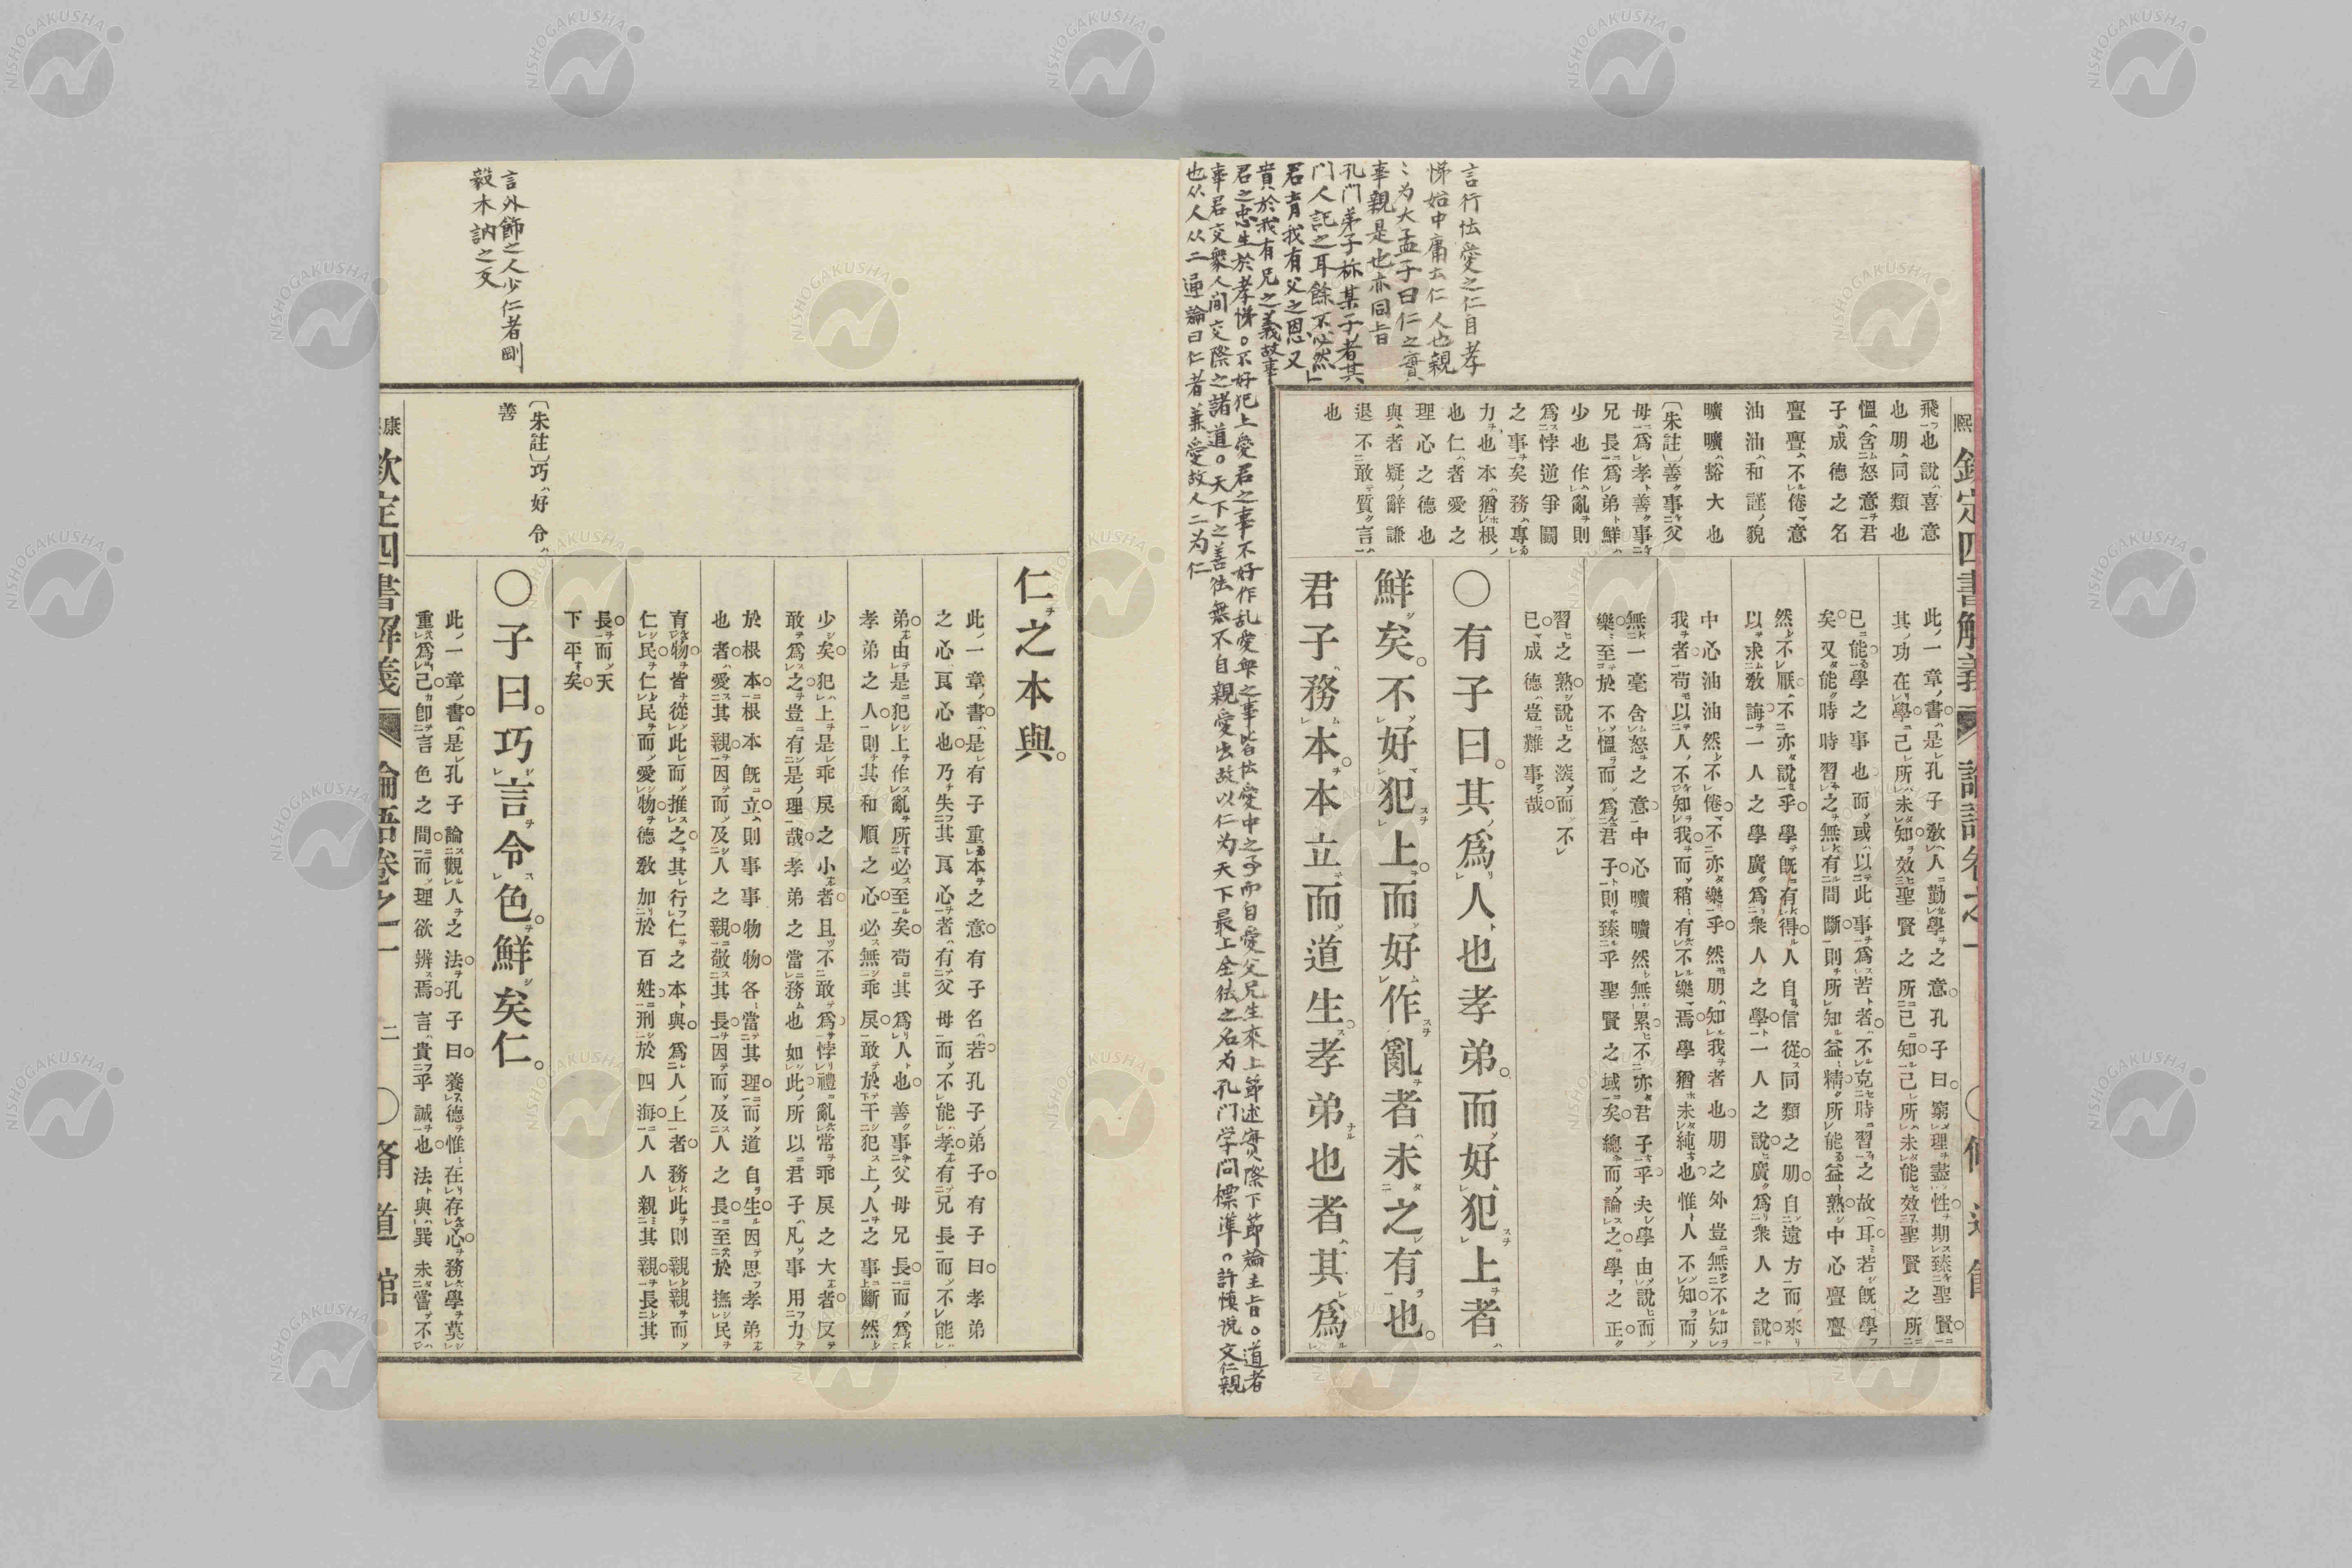 言行怯愛之仁自孝
悌始中庸云仁人也親
〻为大孟子曰仁之實
事親是也亦同旨
孔门弟子称某子者其
门人記之耳餘不必然」
君育我有父之恩又
貴於我有兄之義故事
君之忠生於孝悌。不好犯上愛君之事不好作乱愛衆之事皆怯愛中之子而自愛父兄生來上節述實際下節論主旨。道者
事君交衆人间交際之諸道。天下之善怯無不自親愛出故以仁为天下最上全怯之名为孔门学问標準。許慎说文仁親
也从人从二逕論曰仁者兼愛故人二为仁
熙
欽定四書解義
論語卷之一
飛也說喜意
也朋同類也
慍含怒意君
子成德之名
亹亹不倦意
油油和謹貌
曠曠豁大也
〔朱註〕善事父
母爲孝善事
兄長爲弟鮮
少也作亂則
爲悖逆爭鬭
之事矣務專
力也本猶根
也仁者愛之
理心之德也
與者疑辭謙
退不敢質言
也
此一章書是孔子敎人勤學之意孔子曰窮理盡性期臻聖賢
其功在學己所未知效聖賢之所己知己所未能效聖賢之所
已能學之事也而或以此事爲苦者不克時習之故耳若旣學
矣又能時時習之無有間斷則所知益精所能益熟中心亹亹
然不厭不亦說乎學旣有得人自信從同類之朋自遠方而來
以求敎誨一人之學廣爲衆人之學一人之說廣爲衆人之說
中心油油然不倦不亦樂乎然朋知我者也朋之外豈無不知
我者苟以人不知我而稍有不樂焉學猶未純也惟人不知而
無一毫含怒之意中心曠曠然無累不亦君子乎夫學由說而
樂至於不慍而爲君子則臻乎聖賢之域矣總而論之學之正
習之熟說之深而不
已成德豈難事哉
〇有子曰其爲人也孝弟而好犯上者
鮮矣不好犯上而好作亂者未之有也
君子務本本立而道生孝弟也者其爲
言外飾之人少仁者剛
毅木訥之反
〔朱註〕巧好令
善
仁之本與
此一章書是有子重本之意有子名若孔子弟子有子曰孝弟
之心良心也乃失其良心者有父母而不能孝有兄長而不能
弟由是犯上作亂所必至矣苟其爲人也善事父母兄長而爲
孝弟之人則其和順之心必無乖戾敢於干犯上人之事斷然
少矣犯上是乖戾之小者且不敢爲悖禮亂常乖戾之大者反
敢爲之豈有是理哉孝弟之當務也如此所以君子凡事用力
於根本根本旣立則事事物物各當其理而道自生因思孝弟
也者愛其親因而及人之親敬其長因而及人之長至於撫民
育物皆從此而推之其行仁之本與爲人上者務此則親親而
仁民仁民而愛物德敎加於百姓刑於四海人人親其親長其
長而天
下平矣
〇子曰巧言令色鮮矣仁
此一章書是孔子論觀人之法孔子曰養德惟在存心務學莫
重爲己卽言色之間而理欲辨焉言貴乎誠也法與巽未嘗不
康
欽定四書解義
論語卷之一
二
〇脩道館
NISHOGAKUSHA